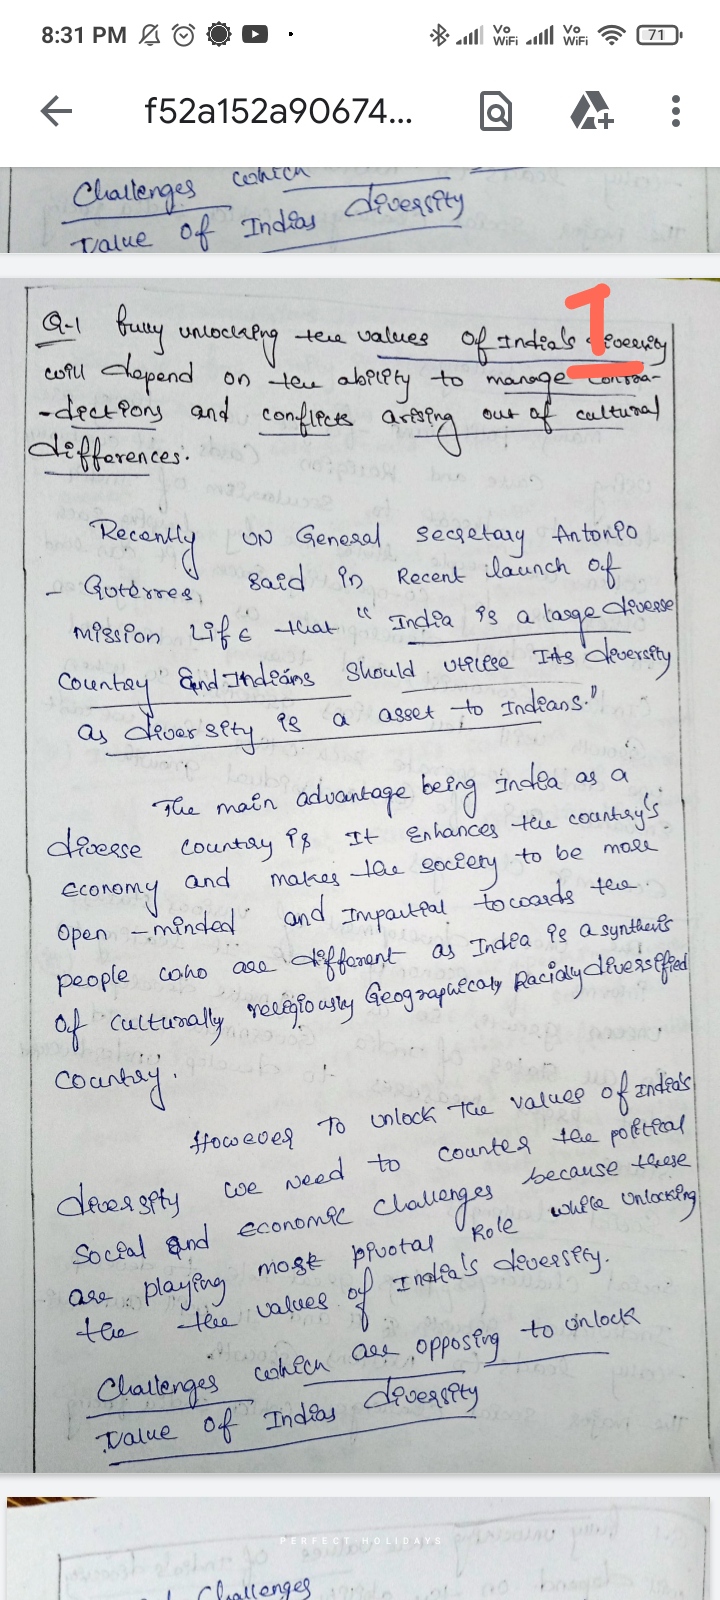 8:31 PM
Vo WiFi Vo WiFi 71
f52a152a90674...
Challenges which
Value of Indias diversity
1
Q-1 fully unlocking the values of India's diversity
will depend on the ability to manage contra-
-dictions and conflicts arising out of cultural
differences.
Recently UN General secretary Antonio
- Guterres, said in Recent launch of
mission LifE that "India is a large diverse
country and Indians should utilise Its diversity
as diversity is a asset to Indians."
The main advantage being India as a
diverse country is It Enhances the country's
economy and makes the society to be more
open-minded and Impartial towards the
people who are different as India is a synthesis
of culturally religiously Geographicaly Racially diversified
country.
However To unlock the values of India's
diversity we need to counter the political
social and economic challenges because these
are playing most pivotal Role while unlocking
the the values of India's diversity.
Challenges which are opposing to unlock
Value of Indias diversity
PERFECT HOLIDAYS
Challenges